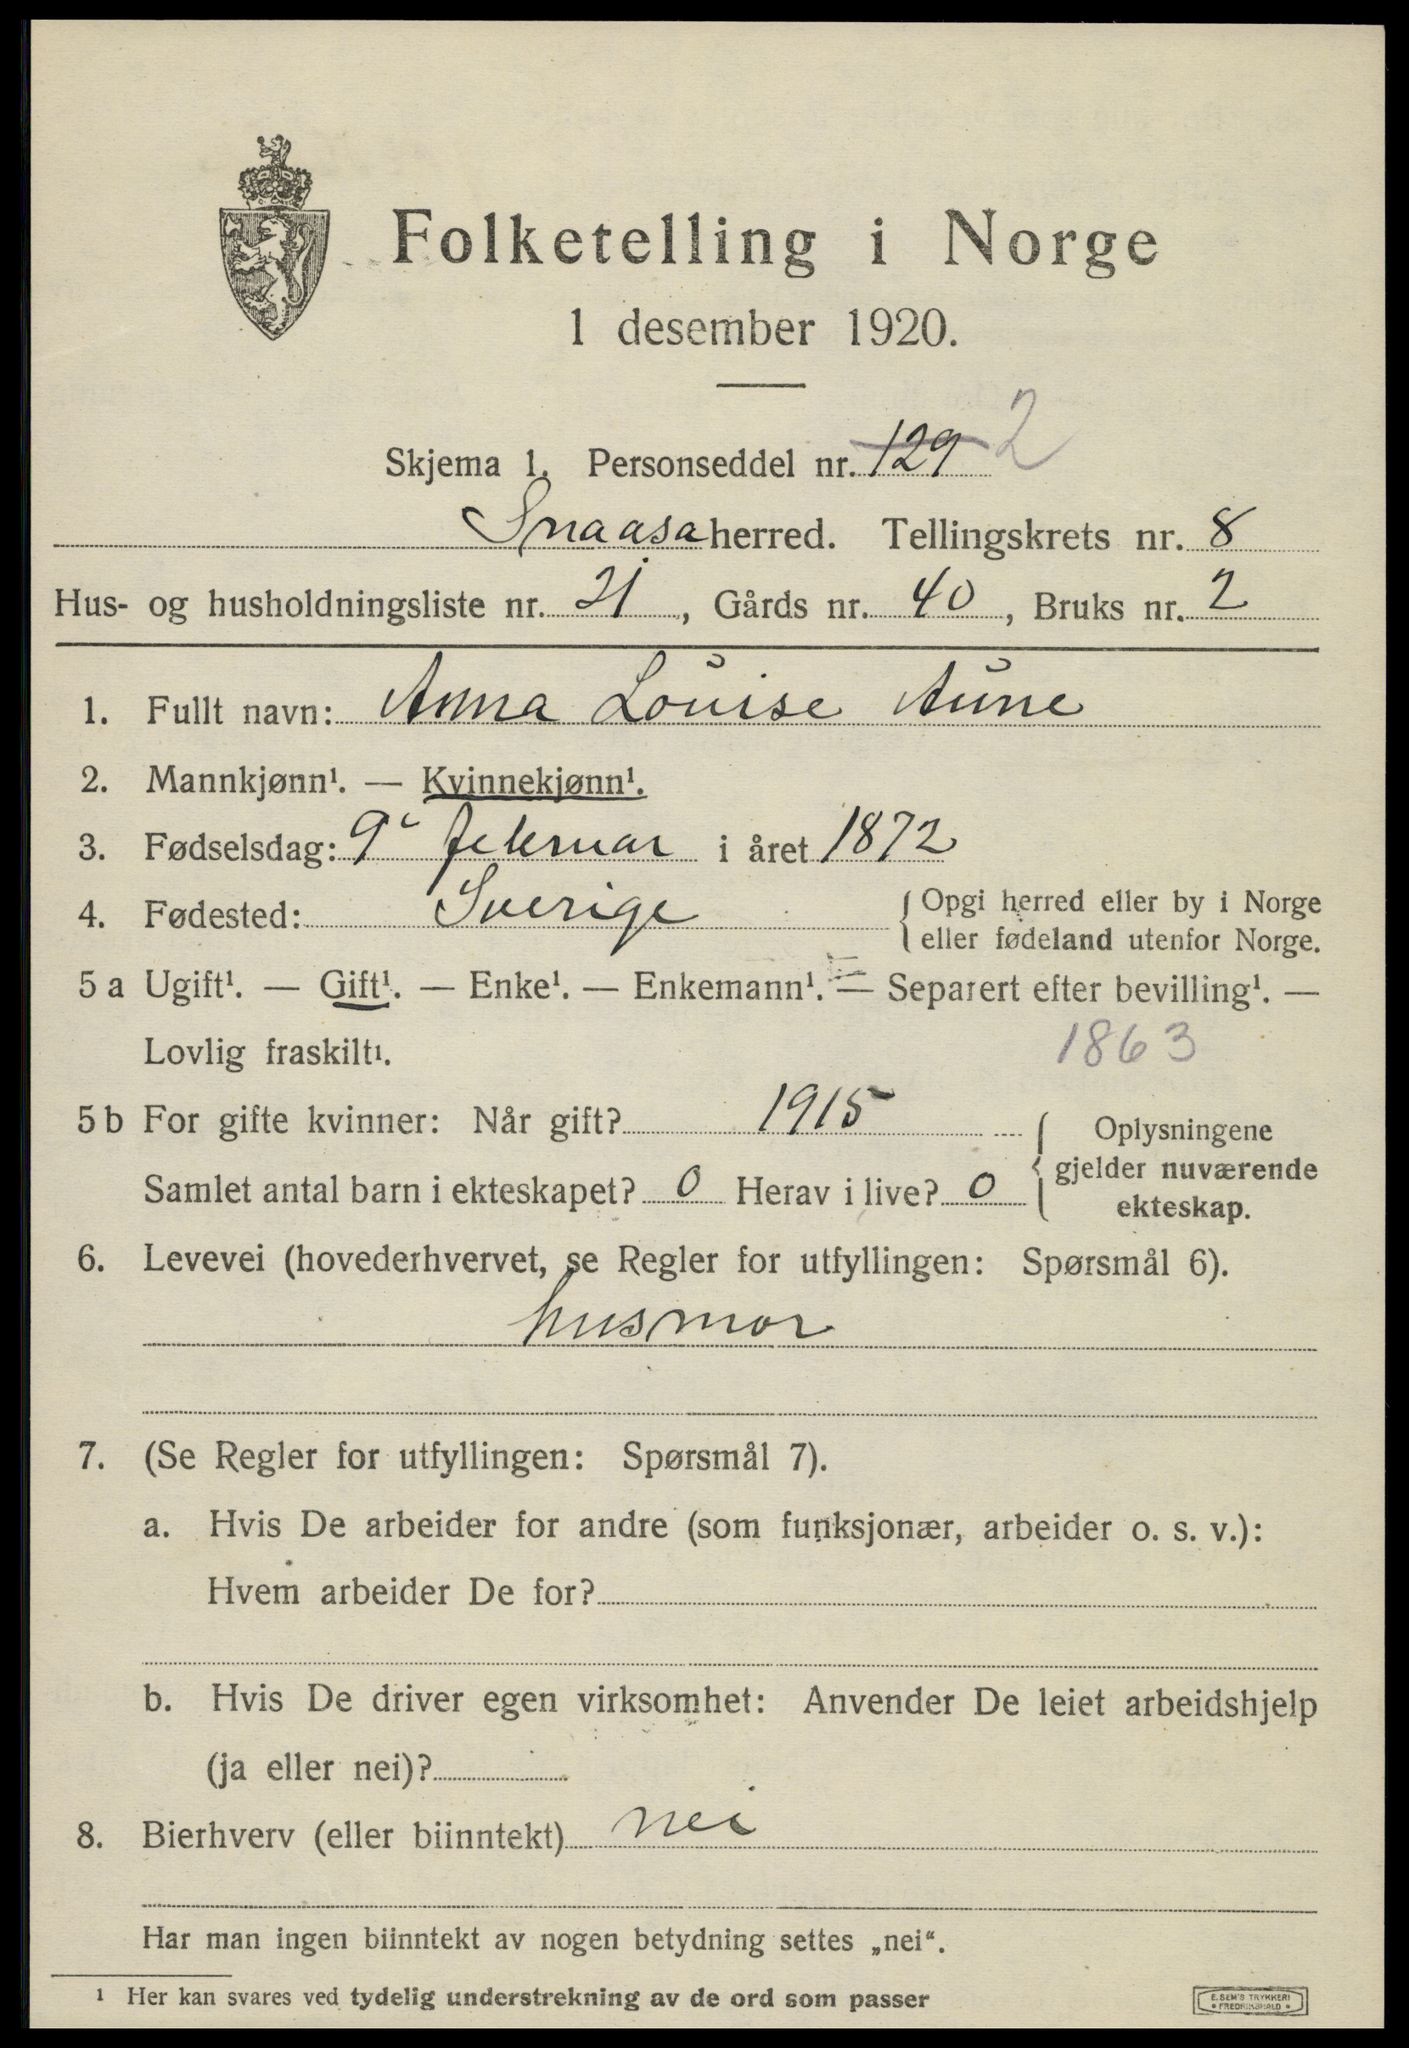 Folketelling i Norge
1 desember 1920.
Skjema 1. Personseddel nr. 129 2
Snaasa herred. Tellingskrets nr. 8
Hus- og husholdningsliste nr. 21, Gårds nr. 40, Bruks nr. 2
1. Fullt navn: Anna Louise Aune
2. Mannkjønn¹. — Kvinnekjønn¹.
3. Fødselsdag: 9de februar i året 1872
4. Fødested: Sverige { Opgi herred eller by i Norge
eller fødeland utenfor Norge.
5 a Ugift¹. — Gift¹. — Enke¹. — Enkemann¹. — Separert efter bevilling¹. —
Lovlig fraskilt¹. 1863
5 b For gifte kvinner: Når gift? 1915 { Oplysningene
gjelder nuværende
Samlet antal barn i ekteskapet? 0 Herav i live? 0 ekteskap.
6. Levevei (hovederhvervet, se Regler for utfyllingen: Spørsmål 6).
husmor
7. (Se Regler for utfyllingen: Spørsmål 7).
a. Hvis De arbeider for andre (som funksjonær, arbeider o. s. v.):
Hvem arbeider De for?
b. Hvis De driver egen virksomhet: Anvender De leiet arbeidshjelp
(ja eller nei)?
8. Bierhverv (eller biinntekt) nei
Har man ingen biinntekt av nogen betydning settes „nei“.
¹ Her kan svares ved tydelig understrekning av de ord som passer
E. SEM'S TRYKKERI
• FREDRIKSHALD •